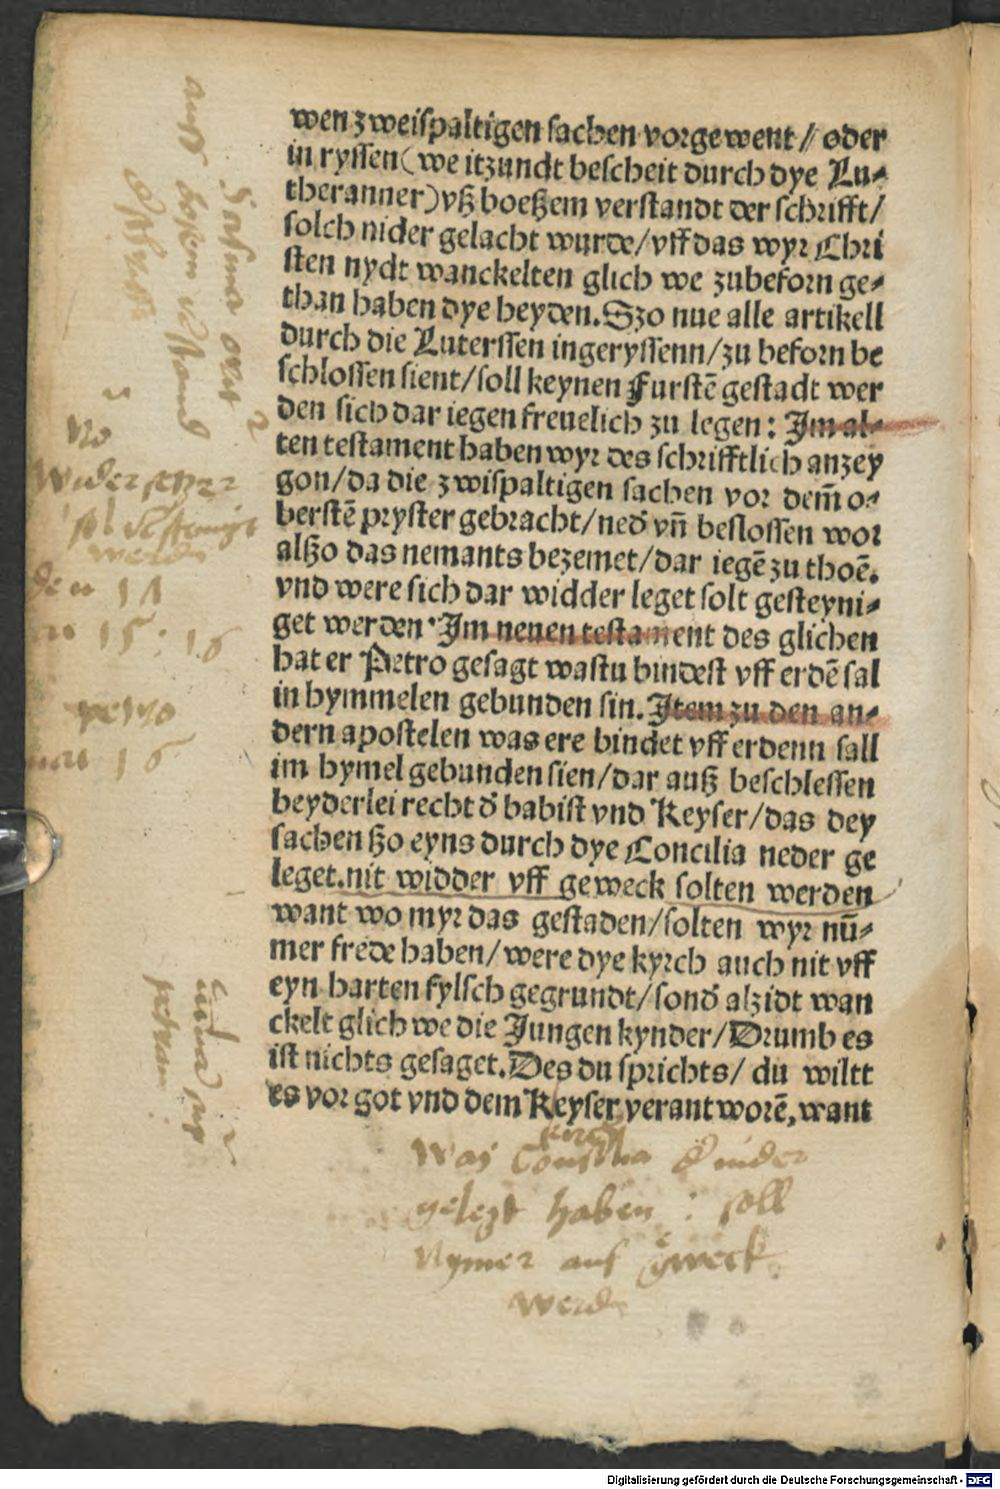 wen zweispaltigen sachen vorgewent // oder
in ryssen (we itzundt bescheit durch dye Lu⸗
theranner) vß boeßem verstandt der schrifft/
solch nider gelacht wurde/ vff das wyr Chri
sten nydt wanckelten glich we zubeforn ge⸗
than haben dye heyden. Szo nue alle artikell
durch die Luterssen ingeryssenn/ zu beforn be
schlossen sient/ soll keynen Furstē gestadt wer
den sich dar iegen freuelich zu legen: Im al⸗
ten testament haben wyr des schrifftlich anzey
gon/ da die zwispaltigen sachen vor dem̄ o⸗
berstē pryster gebracht/ ned̕ vn̄ beslossen wor
alßo das nemants bezemet/ dar iegē zu thoē.
vnd were sich dar widder leget solt gesteyni⸗
get werden. Im neuen testament des glichen
hat er Petro gesagt wastu bindest vff erdē sal
in hymmelen gebunden sin. Item zu den an⸗
dern apostelen was ere bindet vff erdenn sall
im hymel gebunden sien/ dar auß beschlessen
beyderlei recht d̕ babist vnd Keyser/ das dey
sachen ßo eyns durch dye Concilia neder ge
leget. nit widder vff geweck solten werden
want wo myr das gestaden/ solten wyr nū⸗
mer frede haben/ were dye kyrch auch nit vff
eyn harten fylsch gegrundt/ sond̕ alzidt wan
ckelt glich we die Jungen kynder/ Drumb es
ist nichts gesaget. Des du sprichts/ du wiltt
es vor got vnd dem Keyser verantworē, want
Widersetzer
werd
15 : 16
petro
16
Was Concilia nider
gelegt haben : soll
Nymer auf geweck
werd
Digitalisierung gefördert durch die Deutsche Forschungsgemeinschaft - DFG